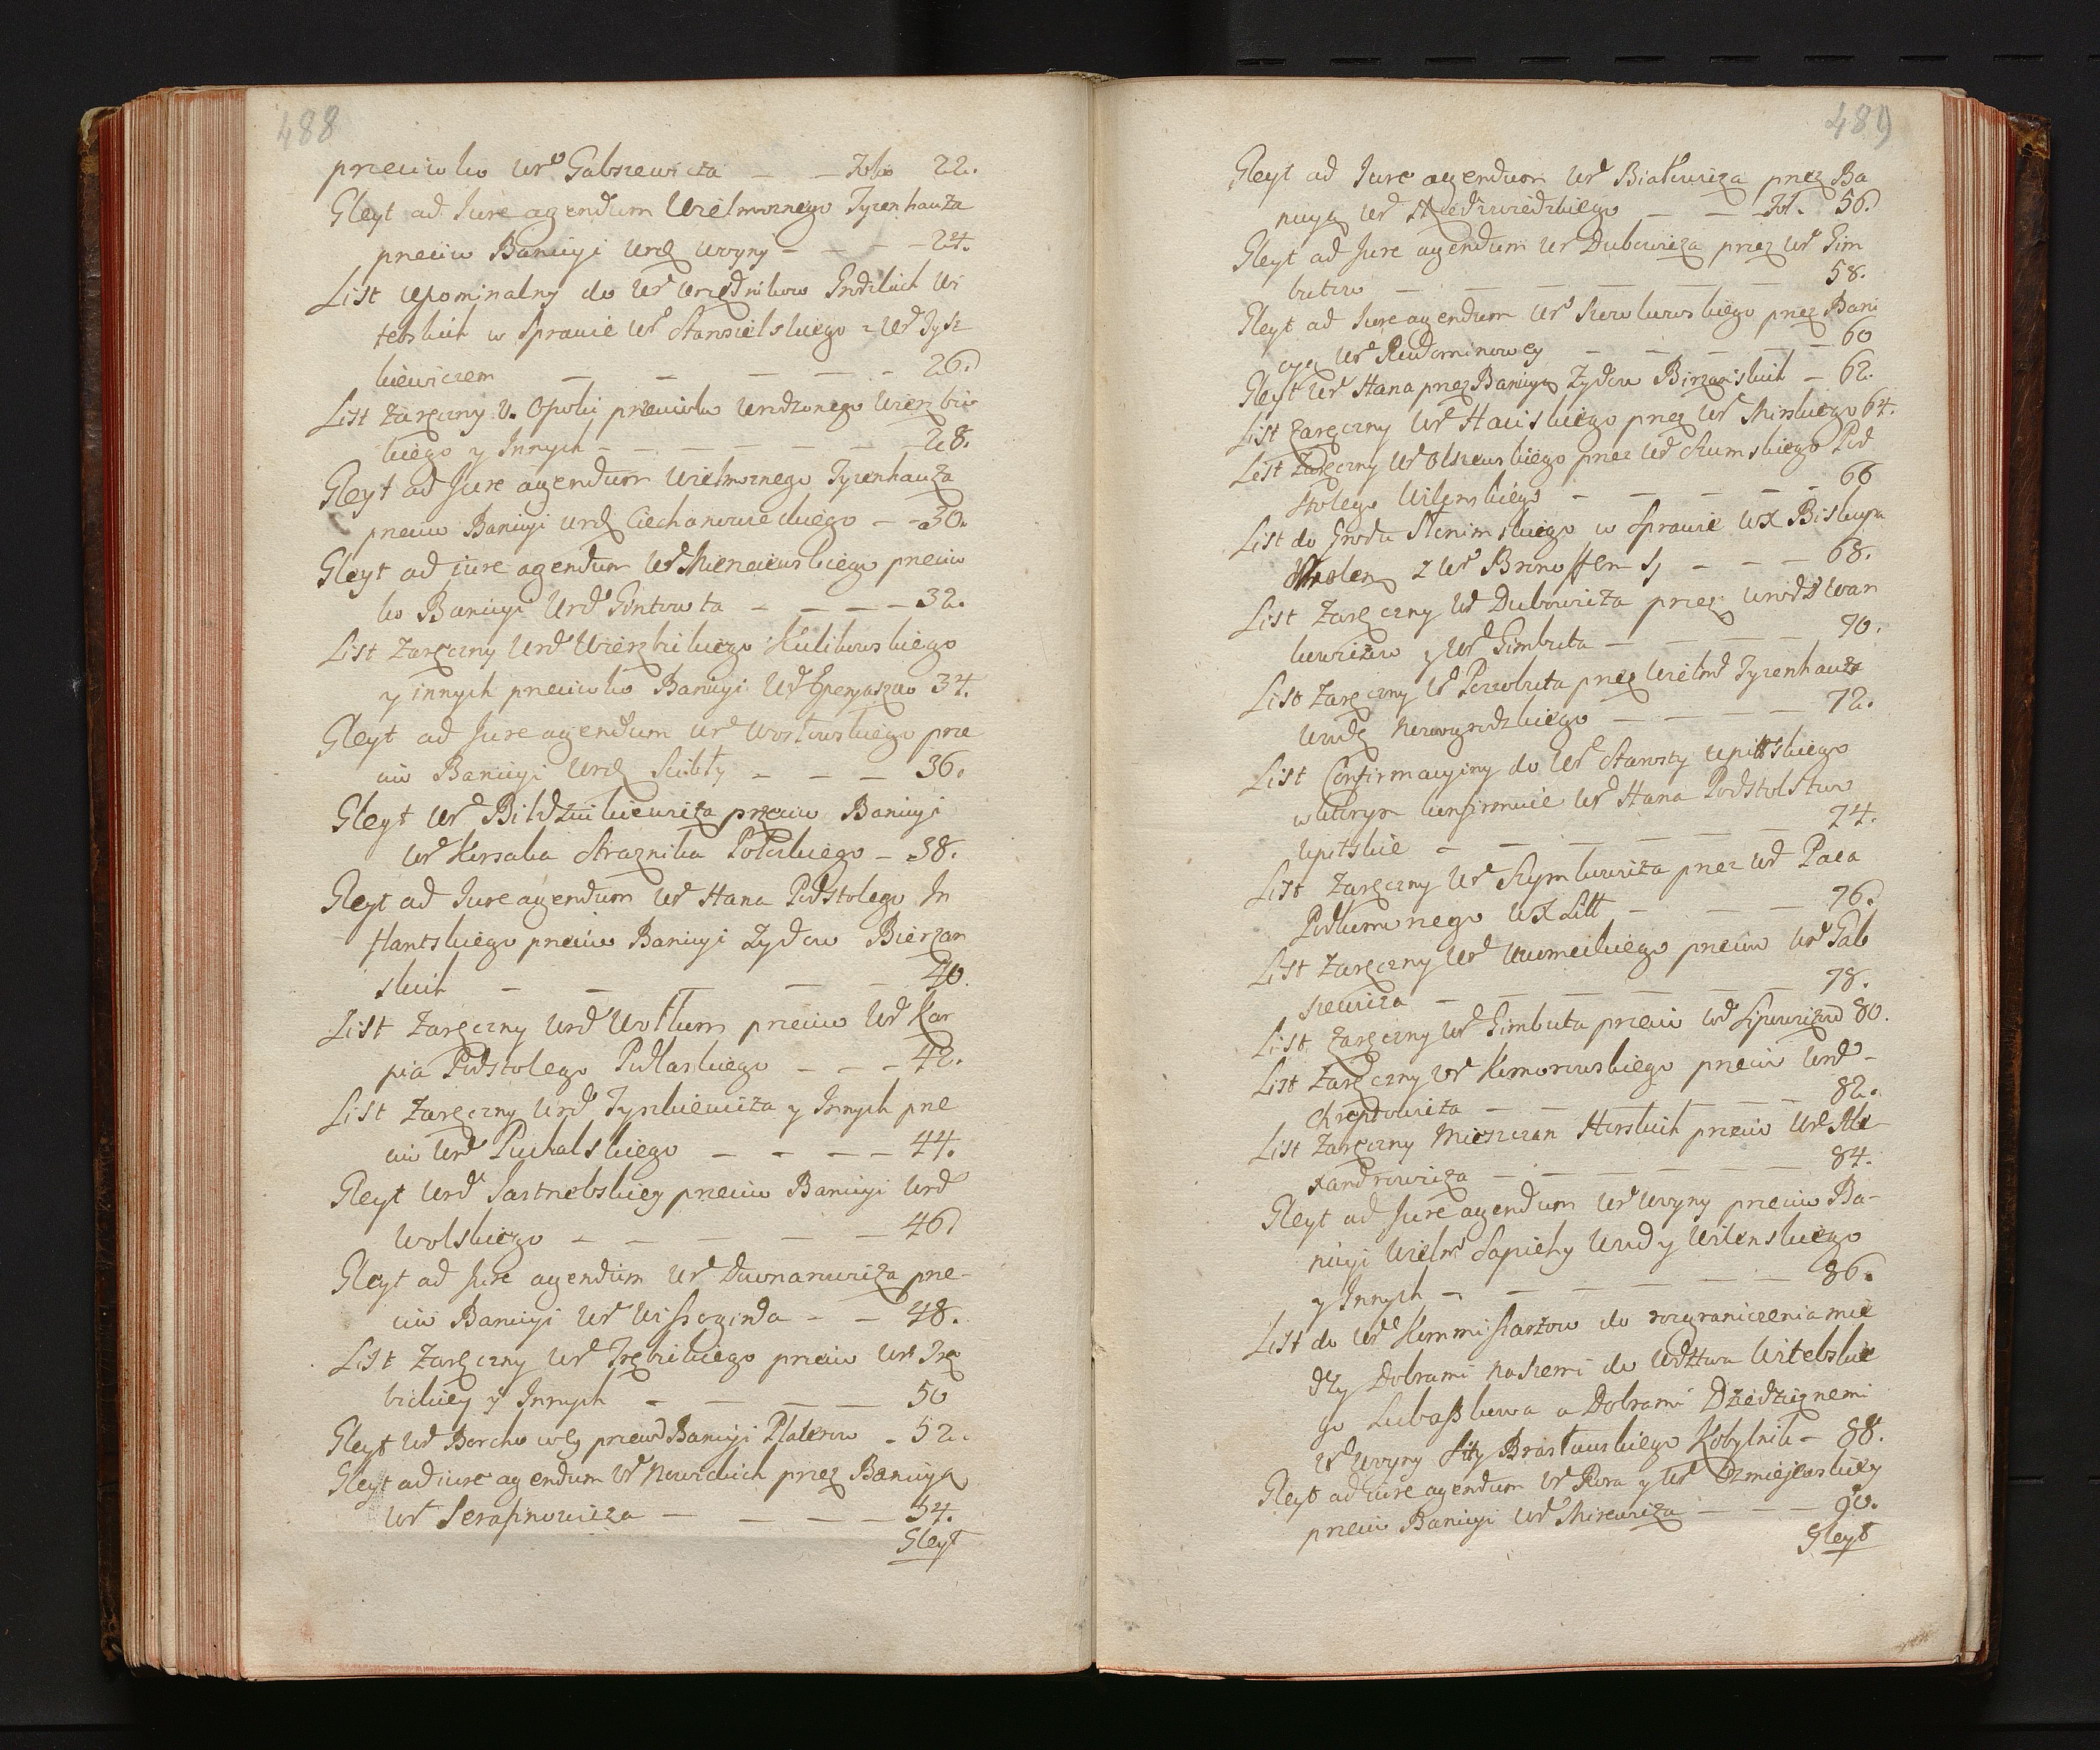 488
przeciwko Urd Gabszewicza — — Folio 22.
Gleyt ad Jure agendum Wielmoznego Tyzenhauza
przeciw Banicyi Urdz Woyny — — — 24.
List Upominalny do Urd Urzędnikow Grodzkich Wi
tebskich w Sprawie Urd Stanisielskiego z Urd Tysz
kiewiczem — — — — — 26.
List Zaręczny U. Opolii przeciwko Urodzonego Wierzbic
kiego y Innych — — — — — 28.
Gleyt ad Jure agendum Wielmoznego Tyzenhauza
przeciw Banicyi Urdz Ciechanowieckiego — — 30.
Gleyt ad iure agendum Urd przeciw
ko Banicyi Urd Gintowta — — — — 32.
List Zaręczny Urd Wierzbickiego Kulikowskiego
y innych przeciwko Banicyi Urd 34.
Gleyt ad Jure agendum Urd Wostowskiego prze
ciw Banicyi Urdz Scibły — — — 36.
Gleyt Urd Bildziukiewicza przeciw Banicyi
Urd Korsaka Straznika Połockiego — 38.
Gleyt ad Jure agendum Urd Hana Podstolego In
flantskiego przeciw Banicyi Zydow Bierzan
skich — — — — — 40.
List Zaręczny Urd Wołkum przeciw Urd Kar
pia Podstolego Podlaskiego — — — 42.
List Zaręczny Urd Tyszkiewicza y Innych prze
ciw Urd Puchalskiego — — — — 44.
Gleyt Urd Jastrzebskiey przeciw Banicyi Urd
Wolskiego — — — — — 46.
Gleyt ad Jure agendum Urd Downarowicza prze-
ciw Banicyi Urd Wissogirda — — 48.
List Zaręczny Urd Trębickiego przeciw Urd Trę
bickiey y Innych — — — — 50
Gleyt Urd Borchowey przeciw Banicyi Platerow — 52.
Gleyt ad iure agendum Urd Nowickich przez Banicyą
Urd Serafinowicza — — — — 54.
Gleyt
489
Gleyt ad Jure agendum Urd Białowicza przez Ba
nicyą Urd Niedzwiedzkiego — — Fol. 56.
Gleyt ad Jure agendum Urd Dubowicza przez Urd Gim
butow — — — — — — 58.
Gleyt ad Jure agendum Urd Sucokowskiego przez Bani
cyą Urd Rudominowey — — — — — 60
Gleyt Urd Hana przez Banicyą Zydow Birzanskich — 62.
List Zaręczny Urd Hauiskiego przez Urd Mirskiego 64.
List Zaręczny Urd Olszewskiego przez Urd Szumskiego Pod
stolego Wilenskiego — — — — — 66
List do Grodu Słonimskiego w Sprawie WX Biskupa
Smolen z Urd — — — 68.
List Zaręczny Urd Dubowicza przez Urodz Wan
kowiczow y Urd Gimbuta — — — — 70.
List Zaręczny Urd Pozzobuta przez Wielmd Tyzenhauza
Wwdę Nowogrodzkiego — — — — 72.
List Confirmacyiny do Urd Starosty Upitskiego
w ktorym konfirmuie Urd Hana Podstolstwo
Upitskie — — — — — 74.
List Zaręczny Urd Szymkowicza przez Urd Paca
Podkomorzego WX Litt — — — 76.
List Zaręczny Urd przeciw Urd Gab
szewicza — — — — — — 78.
List Zaręczny Urd Gimbuta przeciw Urd 80.
List Zaręczny Urd Komorowskiego przeciw Urd-
Chreptowicza — — — — — 82.
List Zaręczny Mieszczan Horskich przeciw Urd Ale
xandrowicza — — — — — — 84.
Gleyt ad Jure agendum Urd Woyny przeciw Ba-
nicyi Wielmd Sapiehy Wwdy Wilenskiego
y Innych — — — — — 86.
List do Urd Kommissarzow do rozgraniczenia mie
dzy Dobrami naszemi do Wdztwa Witebskie
go Lubaszkowa a Dobrami Dziedzicznemi
Urd Woyny Stty Brasławskiego Kobylnik — 88.
Gleyt ad iure agendum Urd Pora y Urd Dzmiejewskiey
przeciw Banicyi Urd Mirewicza — — — 90.
Gleyt